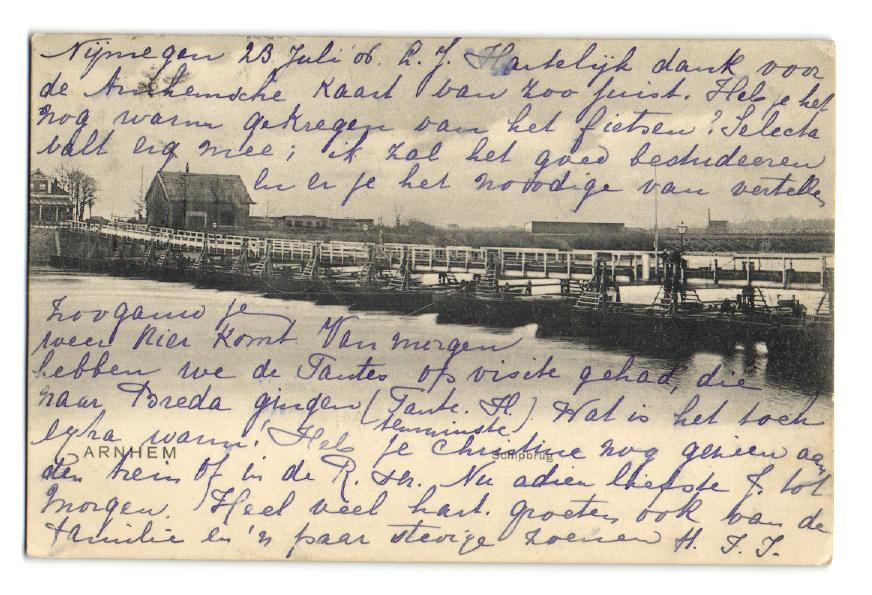 Nijmegen 23 Juli '06. L. J. Hartelijk dank voor
de Arnhemsche Kaart van zoo juist. Heb je het
nog warm gekregen van het fietsen? Selecta
valt erg mee; ik zal het goed bestudeeren
en er je het noodige van vertellen
zoogauw je
weer hier komt Van morgen
hebben we de Tantes op visite gehad, die
naar Breda gingen (Tante. H.) Wat is het toch
tenminste
warm! Heb je Christine nog gezien aan
ARNHEM
Schipbrug
den trein of in de R. str. Nu adieu liefste J. tot
morgen. Heel veel hart. groeten ook van de
familie en 'n paar stevige zoenen H. J. J.